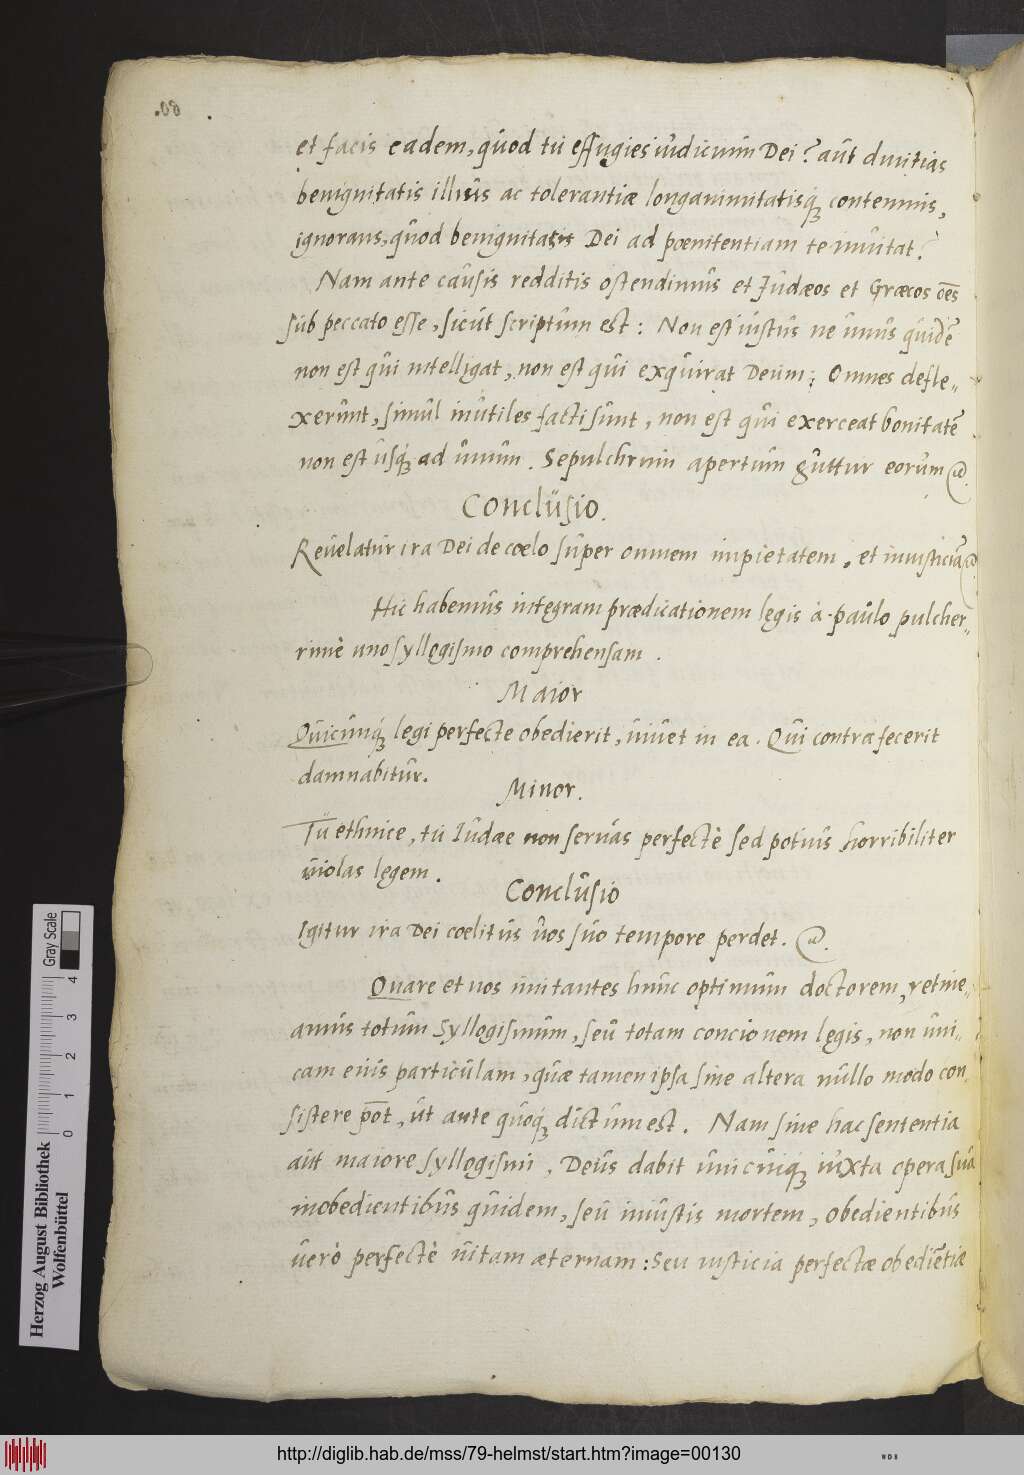 60.
et facis eadem, quod tu effugies iudicium Dei? aut diuitias
benignitatis illius ac tolerantiæ longanimitatisq́ꝫ contemnis,
ignorans, quod benignitas Dei ad pœnitentiam te inuitat?
Nam ante causis redditis ostendimus et Iudæos et Græcos oēs
sub peccato esse, sicut scriptum est: Non est iustus ne unus quidē
non est qui intelligat, non est qui exquirat Deum; Omnes defle„
xerunt, simul inutiles facti sunt, non est qui exerceat bonitatē
non est usq́ꝫ ad unum. Sepulchrum apertum guttur eorum
Conclusio.
Reuelatur ira Dei de cœlo super omnem impietatem, et iniusticiā
Hic habemus integram prædicationem legis à paulo pulcher„
rimè uno syllogismo comprehensam.
Maior
Quicunq́ꝫ legi perfecte obedierit, uiuet in ea. Qui contra fecerit
damnabitur.
Minor.
Tu ethnice, tu Iudæe non seruas perfectè sed potius horribiliter
uiolas legem.
Conclusio
Igitur ira Dei cœlitus uos suo tempore perdet.
Quare et nos imitantes hunc optimum doctorem, retine„
amus totum syllogismum, seu totam concionem legis, non uni„
cam eius particulam, quæ tamen ipsa sine altera nullo modo con
sistere põt, ut ante quoq́ꝫ dictum est. Nam sine hac sententia
aut maiore syllogismi, Deus dabit unicuiq́ꝫ iuxta opera sua
inobedientibus quidem, seu iniustis mortem, obedientibus
uerò perfectè uitam æternam: seu iusticia perfectæ obediētiæ
Herzog August Bibliothek
Wolfenbüttel
0 1 2 3 4
Gray Scale
http://diglib.hab.de/mss/79-helmst/start.htm?image=00130